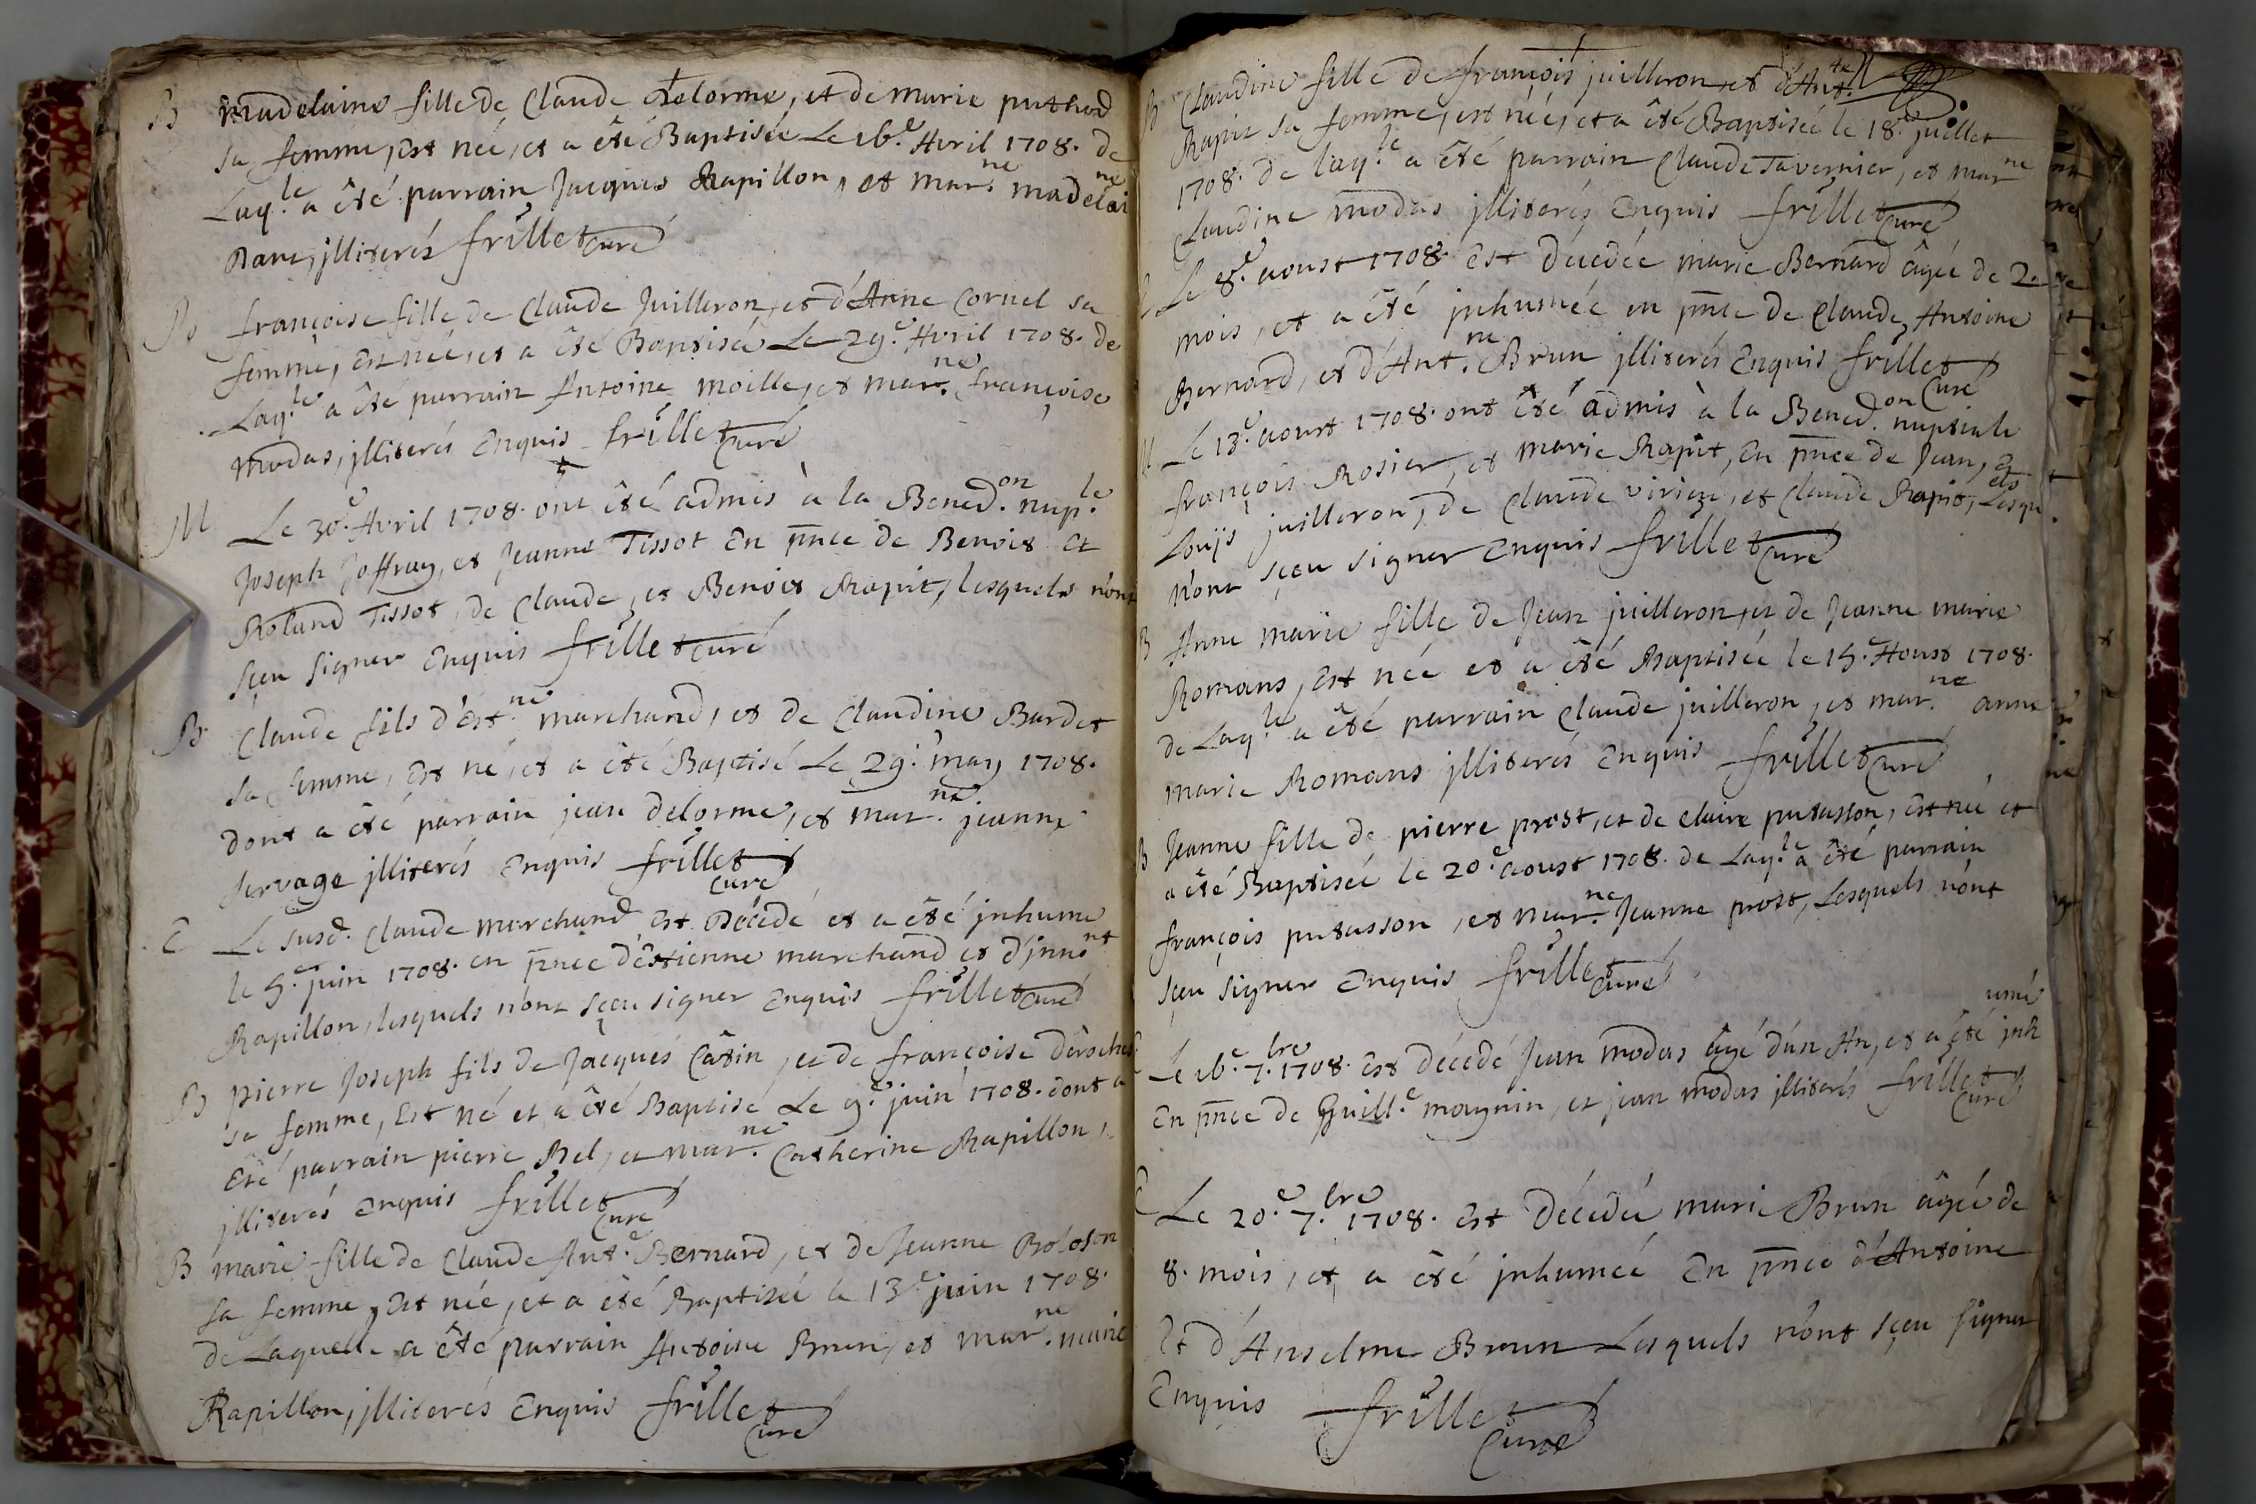 B Madelaine fille de Claude Delorme, et de marie puthod
sa femme, Est née, et a été Baptisée Le 16.e Avril 1708. de
Laq.le a été parrain Jacques Rapillon, et mar.ne madelai ne
Rant, jlliterés frillet curé
B françoise fille de Claude Juilleron, et d'Anne Cornel sa
femme, Est née, et a été Baptisée Le 29.e Avril 1708. de
Laq.le a été parrain Antoine moille, et mar.ne françoise
modas, jlliterés Enquis frillet curé
M Le 30.e Avril 1708. ont été admis à la Bened.on nup.le
Joseph Joffray, et Jeanne Tissot En pnce de Benoit et
Roland Tissot, de Claude, et Benoit Rapit, lesquels n'ont
sçeu signer Enquis frillet curé
B Claude fils d'Est.ne marchand, et de Claudine Bardet
sa femme, Est né, et a été Baptisé Le 29.e may 1708.
dont a été parrain jean delorme, et mar.ne jeanne
servage jlliterés Enquis frillet
curé
E Le susd. Claude marchand Est Décédé et a été jnhumé
le 5.e juin 1708. en pnce d'éstienne marchand et d'jnno.nt
Rapillon, lesquels n'ont sçeu signer Enquis frillet curé
B pierre Joseph fils de Jacques Catin, et de françoise déroches
sa femme, Est né et a été Baptisé Le 9.e juin 1708. dont a
Eté parrain pierre Bel, et mar.ne Catherine Rapillon,
jlliterés Enquis frillet
curé
B marie fille de Claude Ant.e Bernard, et de Jeanne Boloson
sa femme, Est née, et a été Baptisée le 13.e juin 1708.
de Laquelle a été parrain Antoine Brun, et mar.ne marie
Rapillon, jlliterés Enquis frillet
curé
B Claudine fille de françois juilleron et d'Ant.te
Rapit sa femme, est née, et a été Baptisée le 18.e juillet
1708. de laq.le a été parrain Claude Tavernier, et mar.ne
Claudine modas jlliterés Enquis frillet curé
E Le 8.e aoust 1708. Est décédée marie Bernard âgée de 2.
mois, et a été jnhumée en pnce de Claude Antoine
Bernard, et d'Ant.ne Brun jlliterés Enquis frillet
Curé
M Le 13.e aoust 1708. ont été admis à la Bened.on nuptiale
françois Rosier, et marie Rapit, En pnce de Jean, et
Louijs juilleron, de Claude virieu, et Claude Rapit, Lesqu els
n'ont sçeu signer Enquis frillet curé
B Anne marie fille de Jean juilleron, et de Jeanne marie
Romans, Est née et a été Baptisée le 15.e Aoust 1708.
de Laq.le a été parrain Claude juilleron, et mar.ne anne
marie Romans jlliterés Enquis frillet curé
B Jeanne fille de pierre prost, et de claire putasson, Est née et
a été Baptisée le 20.e aoust 1708. de Laq.le a été parrain
françois putasson, et mar.ne Jeanne prost, Lesquels n'ont
sçeu signer Enquis frillet curé
E Le 16.e 7.bre 1708. Est décédé Jean modas âgé d'un An, et a été jnh umé
En pnce de Guill.e magnin, et jean modas jlliterés frillet
curé
E Le 20.e 7.bre 1708. Est Décédée marie Brun âgée de
8. mois, et a été jnhumée En pnce d'Antoine
Et d'Anselme Brun Lesquels n'ont sçeu signer
Enquis frillet
Curé